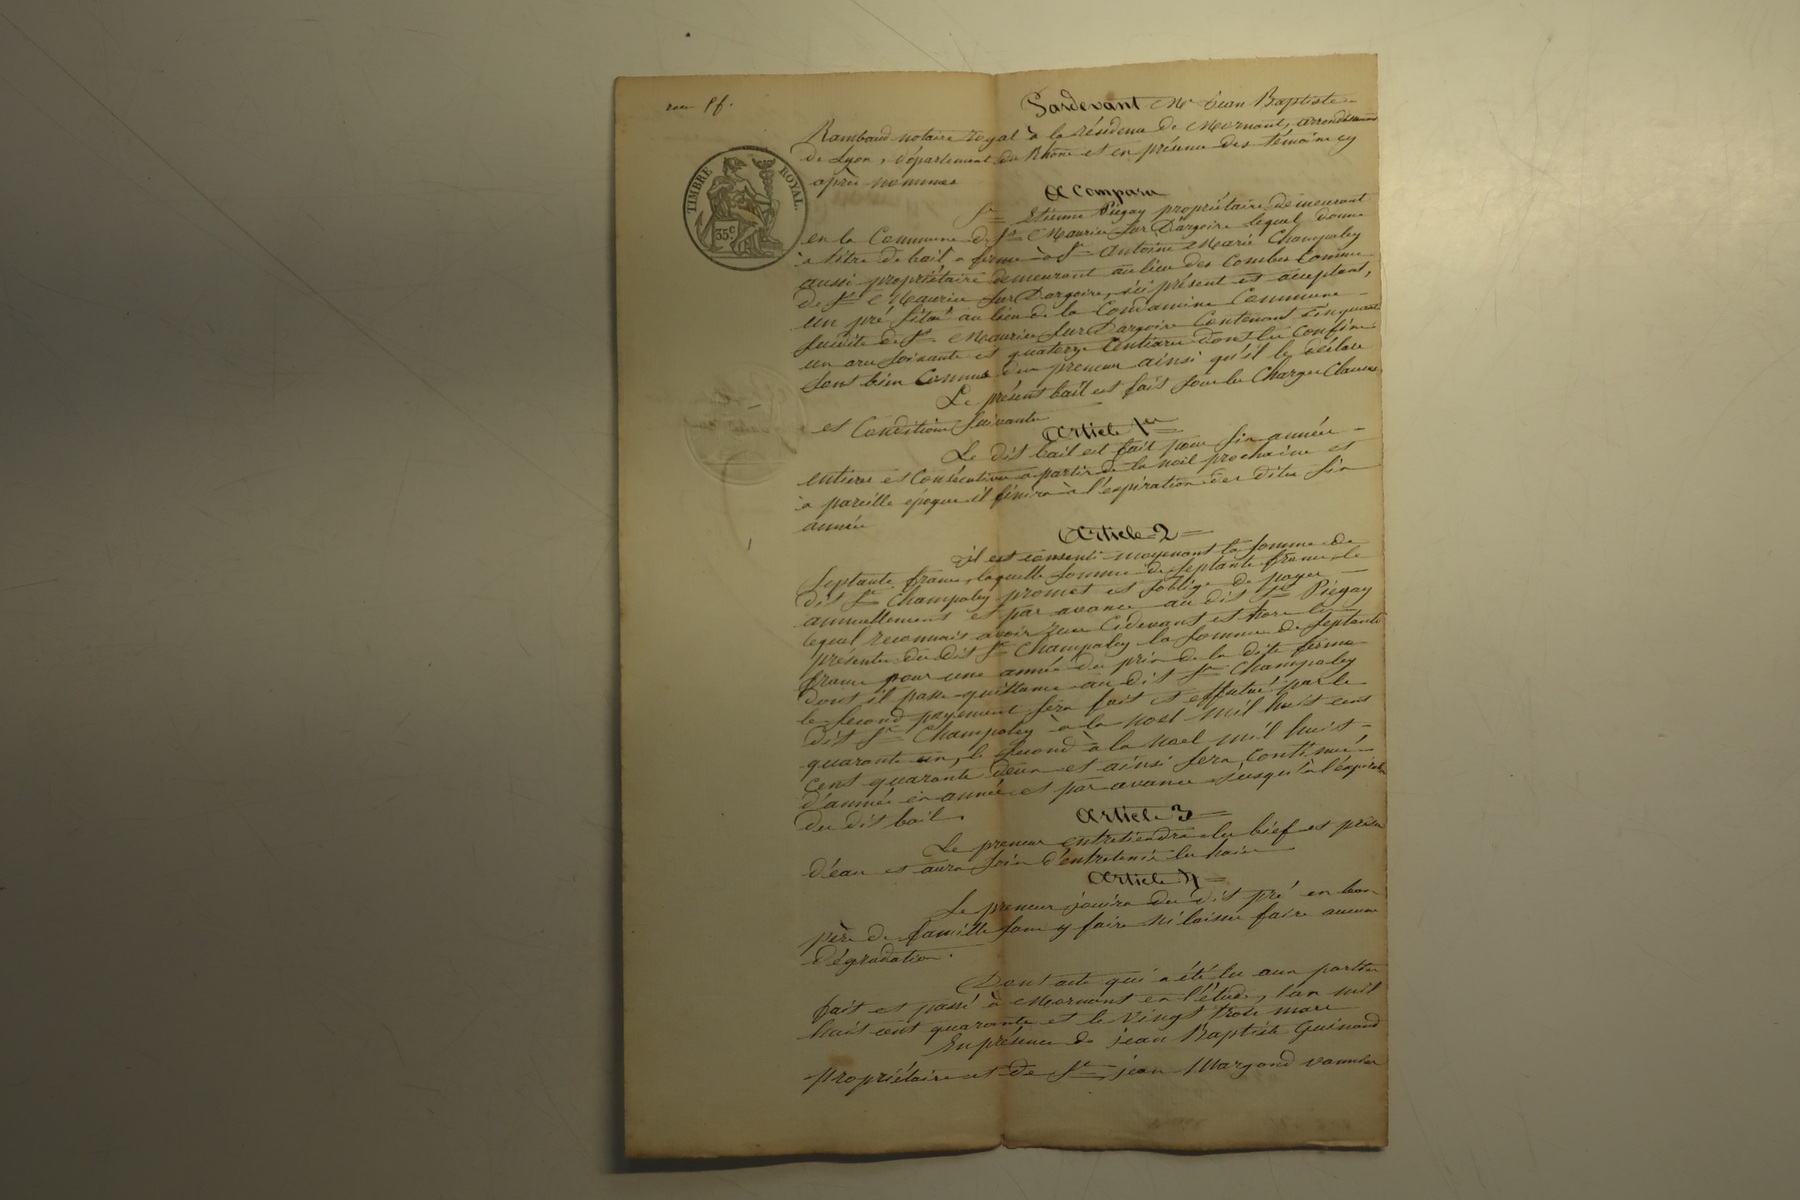 Pardevant Me Jean Baptiste
Rambaud notaire royal à la résidence de Mornant, arrondissement
de Lyon, département du Rhône et en présence des témoins cy
après nommés
TIMBRE ROYAL.
35c
A Comparu
Sr Etienne Piégay propriétaire demeurant
en la Commune de St Maurice Sur Dargoire lequel donne
à titre de bail a ferme à Sr Antoine Marie Champaley
aussi propriétaire demeurant au lieu des Combes Commune
de St Maurice Sur Dargoire, ici présent et acceptant,
un pré situé au lieu de la Condamine Commune
susdite de St Maurice Sur Dargoire Contenant cinquante
un are soixante et quatorze Centiares dont les Confins
sont bien Connus du preneur ainsi qu'il le déclare
Le présent bail est fait sous les Charges Clauses
et Conditions Suivantes
Article 1er
Le dit bail est fait pour six années
entieres et Consécutives a partir de la noël prochaine et
à pareille époque il finira à l'expiration des dites six
années
Article 2
il est consenti moyenant la somme de
Septante francs, laquelle somme de septante francs le
dit Sr Champaley promet et s'oblige de payer
annuellement et par avance au dit Sr Piégay
lequel reconnais avoir reçu Cidevant et hors les
présentes du dit Sr Champaley la somme de septante
francs pour une année du prix de la dite ferme
dont il passe quittance au dit Sr Champaley
le second payement sera fait et effectué par le
dit Sr Champaley à la noel mil huit cent
quarante un, le second à la noel mil huit
cent quarante deux et ainsi sera continué
d'année en année et par avance jusqu'à l'expiration
du dit bail.
Article 3
Le preneur entretiendra les bief et prises
d'eau et aura soin d'entretenir les haies
Article 4
Le preneur jouira du dit pré en bon
père de famille sans y faire ni laisser faire aucune
dégradation.
Dont acte qui a été lu aux parties
fait et passé à Mornant en l'étude, l'an mil
huit cent quarante et le vingt trois mars
En présence de jean Baptiste Guinand
propriétaire et de Sr jean Margand vannier